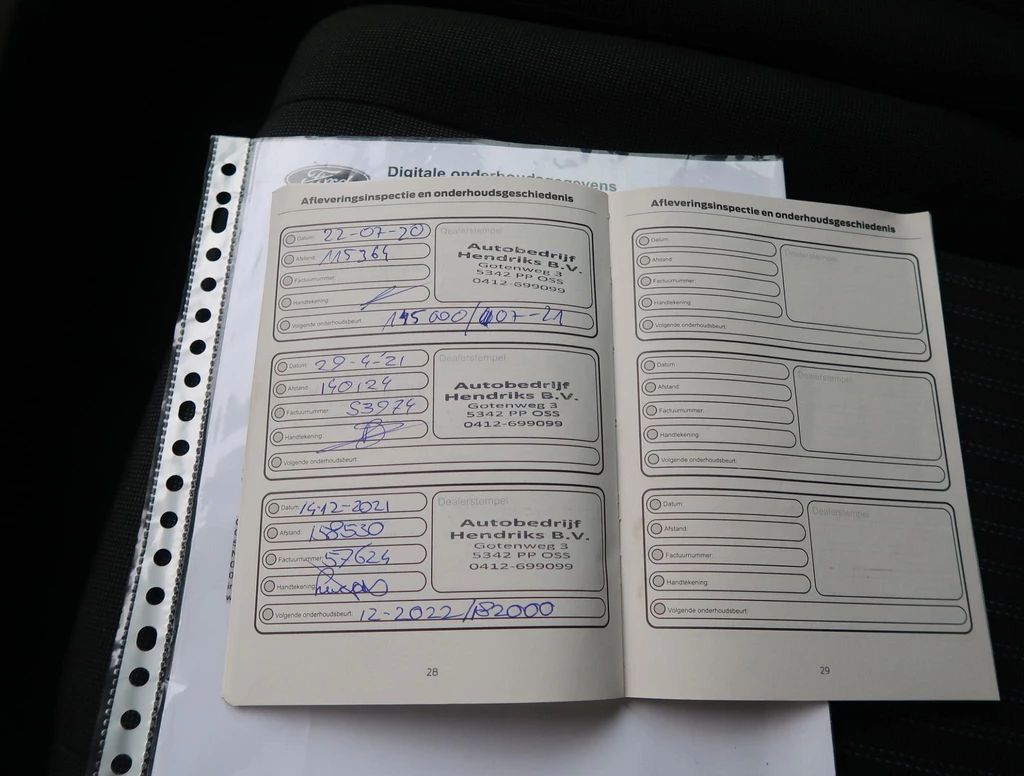 Ford
Digitale onderhoudsgegevens
Afleveringsinspectie en onderhoudsgeschiedenis
Datum: 22-07-20
Afstand: 115364
Factuurnummer:
Handtekening:
Volgende onderhoudsbeurt: 145000/07-21
Dealerstempel
Autobedrijf
Hendriks B.V.
Gotenweg 3
5342 PP OSS
0412-699099
Datum: 29-4-21
Afstand: 140124
Factuurnummer: 53974
Handtekening:
Volgende onderhoudsbeurt:
Dealerstempel
Autobedrijf
Hendriks B.V.
Gotenweg 3
5342 PP OSS
0412-699099
Datum: 14-12-2021
Afstand: 158530
Factuurnummer: 57624
Handtekening:
Volgende onderhoudsbeurt: 12-2022/182000
Dealerstempel
Autobedrijf
Hendriks B.V.
Gotenweg 3
5342 PP OSS
0412-699099
28
Afleveringsinspectie en onderhoudsgeschiedenis
Datum:
Afstand:
Factuurnummer:
Handtekening:
Volgende onderhoudsbeurt:
Dealerstempel
Datum:
Afstand:
Factuurnummer:
Handtekening:
Volgende onderhoudsbeurt:
Dealerstempel
Datum:
Afstand:
Factuurnummer:
Handtekening:
Volgende onderhoudsbeurt:
Dealerstempel
29